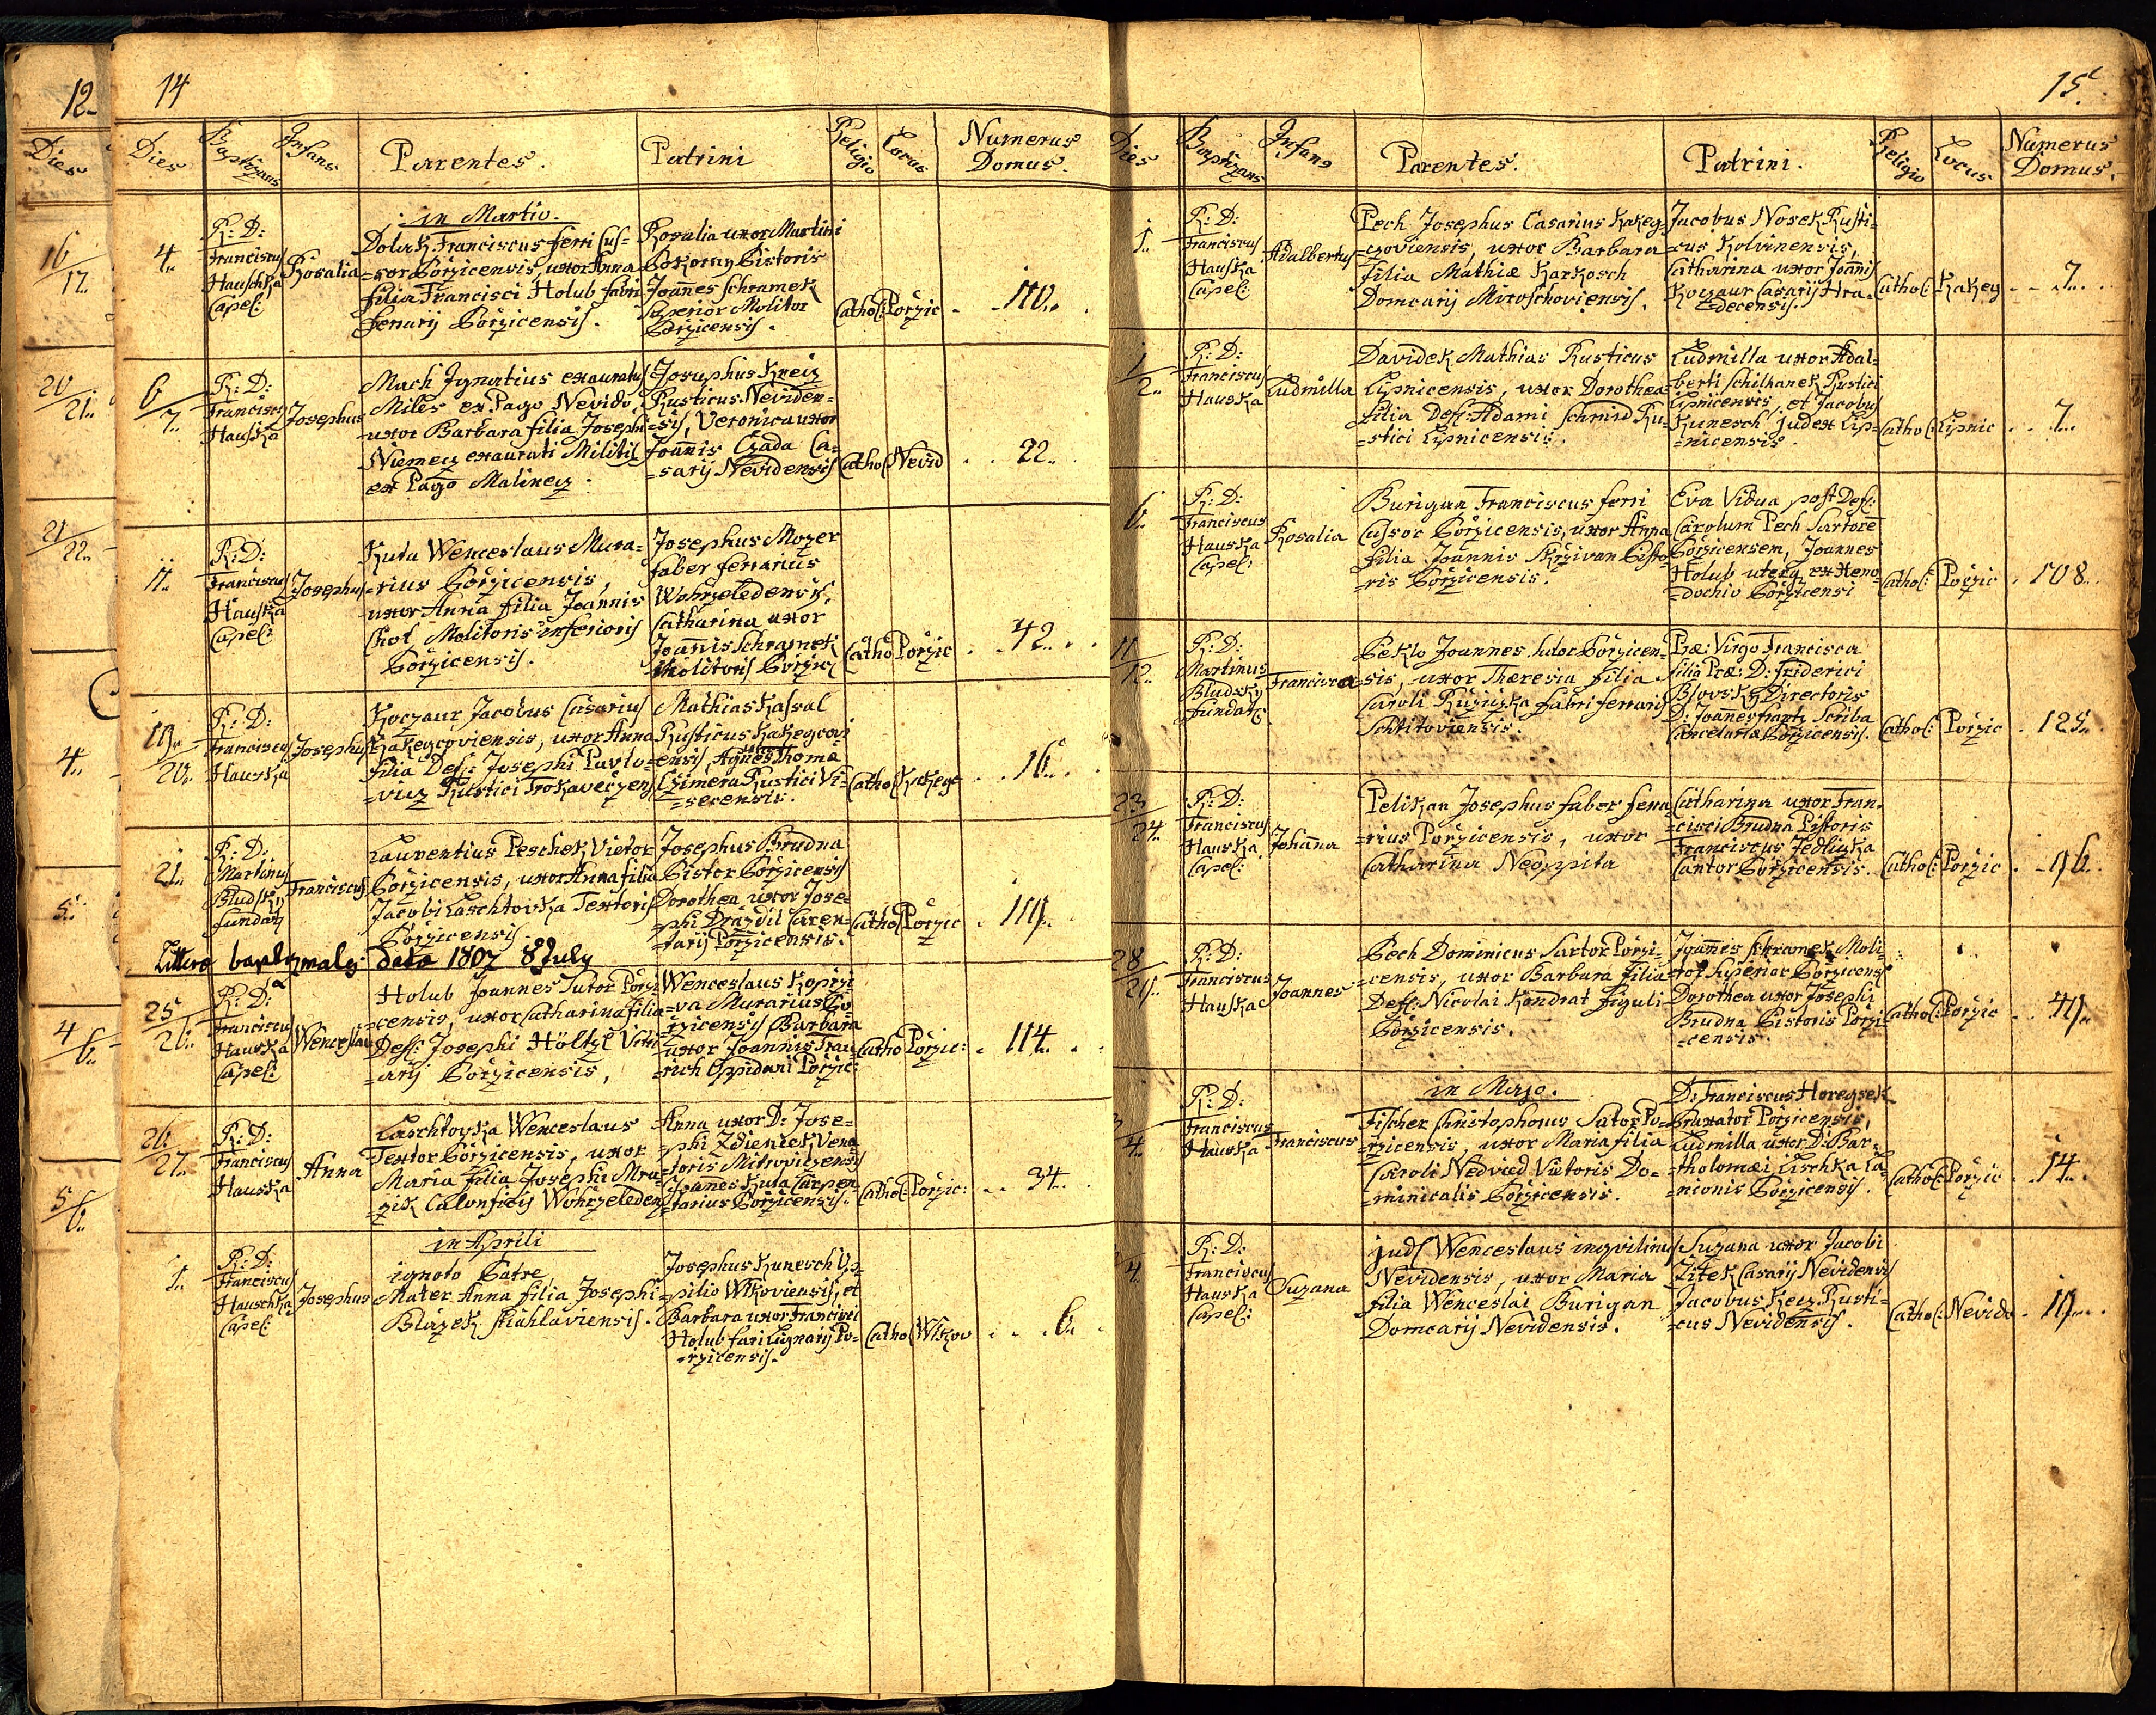 12
Dies
16/17
20/21
21/22
4
5
4/6
5/6
14
Dies Baptizans Infans Parentes. Patrini Religio Locus Numerus Domus.
in Martio.
4
R: D:
Franciscus
Hauschka
Capel:
Rosalia
Dolak Franciscus ferri cus=
=sor Pořzicensis, uxor Anna
filia Francisci Holub fabri
ferrarij Pořzicensis.
Rosalia uxor Martini
Pokorny Pistoris
Joannes Schramek
superior Molitor
Pořzicensis.
Cathol: Pořzic 110
6/7
R: D:
Franciscus
Hauska
Josephus
Mach Ignatius exauratus
Miles ex Pago Nevido,
uxor Barbara filia Josephi
Niemecz exaurati Militis
ex Pago Malinecz.
Josephus Kreiz
Rusticus Neviden=
=sis, Veronica uxor
Joannis Czada Ca=
=sarij Nevidensis
Cathol Nevid 22
11
R: D:
Franciscus
Hauska
Capel:
Josephus
Kuta Wenceslaus Mura=
=rius Pořzicensis,
uxor Anna filia Joannis
Chot Molitoris inferioris
Pořzicensis.
Josephus Mozer
faber ferrarius
Wohrzeledensis,
Catharina uxor
Joannis Schramek
Molitoris Pořzic
Cathol Pořzic 42
19/20
R: D:
Franciscus
Hauska
Josephus
Koczaur Jacobus Casarius
Kakegcoviensis, uxor Anna
filia Def: Josephi Pavlo=
=vicz Rustici Trokaveczens
Mathias Kassal
Rusticus Kakegcovi
ensis, Agnes uxor Thoma
Czimera Rustici Vi=
=secensis.
Cathol Kakegc 16
21
R: D:
Martinus
Bludsky
fundat
Franciscus
Laurentius Peschek Vietor
Pořzicensis, uxor Anna filia
Jacobi Laschtovka Textoris
Pořzicensis.
Josephus Brudna
Pistor Pořzicensis
Dorothea uxor Jose=
=phi Drázdil Caren=
=tarij Pořzicensis.
Cathol Pořzic 119
Littera baptismales data 1807 8 July
25/26
R: D:
Franciscus
Hauska
Capel:
Wenceslaus
Holub Joannes Sutor Pořzi
=censis, uxor Catharina filia
Def: Josephi Höltzl Vitri
=arij Pořzicensis,
Wenceslaus Kopřzi
=va Murarius Po
řzicensis Barbara
uxor Joannis Frau
=rich Oppidani Pořzic:
Cathol Pořzic: 114
26/27
R: D:
Franciscus
Hauska
Anna
Laschtovka Wenceslaus
Textor Pořzicensis, uxor
Maria filia Josephi Mra=
=zik Calonficis Wohrzeledens
Anna uxor D: Jose=
=phi Zdieniek Vena
=toris Mitrovitzensis
Joannes Kuta Carpen
=tarius Pořzicensis.
Cathol: Pořzic: 34
in Aprili
1
R: D:
Franciscus
Hauschka
Capel:
Josephus
ignoto Patre
Mater Anna filia Josephi
Blazek Stiahlaviensis.
Josephus Kunesch Vo=
=pilio Wlkoviensis, et
Barbara uxor Francisci
Holub fari Lignarij Po=
=řzicensis.
Cathol Wlkov 6
15
Dies Baptizans Infans Parentes. Patrini. Religio Locus Numerus Domus.
1
R: D:
Franciscus
Hauska
Capel:
Adalbertus
Pech Josephus Casarius Kakeg=
=czoviensis, uxor Barbara
filia Mathiæ Karkosch
Domcarij Miroschoviensis.
Jacobus Nosek Rusti=
=cus Kolvinensis,
Catharina uxor Joannis
Koczaur Casarij Hra=
=decensis.
Cathol: Kakeg 7
1/2
R: D:
Franciscus
Hauska
Ludmilla
Davidek Mathias Rusticus
Lipnicensis, uxor Dorothea
filia Def: Adami Schmid Ru=
=stici Lipnicensis.
Ludmilla uxor Adal=
berti Schilhanek Rustici
Lipnicensis, et Jacobus
Kunesch Judex Lip=
=nicensis.
Cathol: Lipnic 7
6
R: D:
Franciscus
Hauska
Capel:
Rosalia
Burigan Franciscus ferri
Cussor Pořzicensis, uxor Anna
filia Joannis Skrziwan Pisto=
ris Pořzicensis.
Eva Vidua post Def:
Carolum Pech Sartore
Pořzicensem, Joannes
Holub uterq ex Xeno=
=dochio Pořzicensi
Cathol: Pořzic 108
11/12
R: D:
Martinus
Bludsky
Fundat:
Francisca
Peklo Joannes Sutor Pořzicen=
sis, uxor Theresia filia
Caroli Ružiczka fabri ferrarij
Schtitoviensis.
Præ: Virgo Francisca
filia Præ: D: Friderici
Blovsky Directoris
D: Joannes Frantz Scriba
Cancelaria Pořzicensis.
Cathol: Pořzic 125
23/24
R: D:
Franciscus
Hauska
Capel:
Johanna
Pelikan Josephus faber ferra
=rius Pořzicensis, uxor
Catharina Neoppita
Catharina uxor Fran=
=cisci Brudna Pistoris
Franciscus Jedliczka
Cantor Pořzicensis.
Cathol: Pořzic 96
28/29
R: D:
Franciscus
Hauska
Joannes
Pech Dominicus Sartor Pořzi=
=censis, uxor Barbara filia
Def: Nicolai Kondrat figuli
Pořzicensis.
Joannes Schramek Moli=
tor superior Pořzicens
Dorothea uxor Josephi
Brudna Pistoris Pořzi
=censis.
Cathol: Pořzic 49
in Majo.
3/4
R: D:
Franciscus
Hauska
Franciscus
Fischer Christophorus Sutor Po=
=rzicensis, uxor Maria filia
Caroli Nedvied Vietoris Do=
=minicalis Pořzicensis.
D: Franciscus Horegsek
Braxator Pořzicensis,
Ludmilla uxor D: Bar=
=tholomæi Lischka La=
=nionis Pořzicensis.
Cathol: Pořzic 14
4
R: D:
Franciscus
Hauska
Capel:
Suzana
juds Wenceslaus inqvilinus
Nevidensis, uxor Maria
filia Wenceslai Burigan
Domcarij Nevidensis.
Suzana uxor Jacobi
Zitek Casarij Nevidensis
Jacobus Keiz Rusti=
=cus Nevidensis.
Cathol: Nevido 19